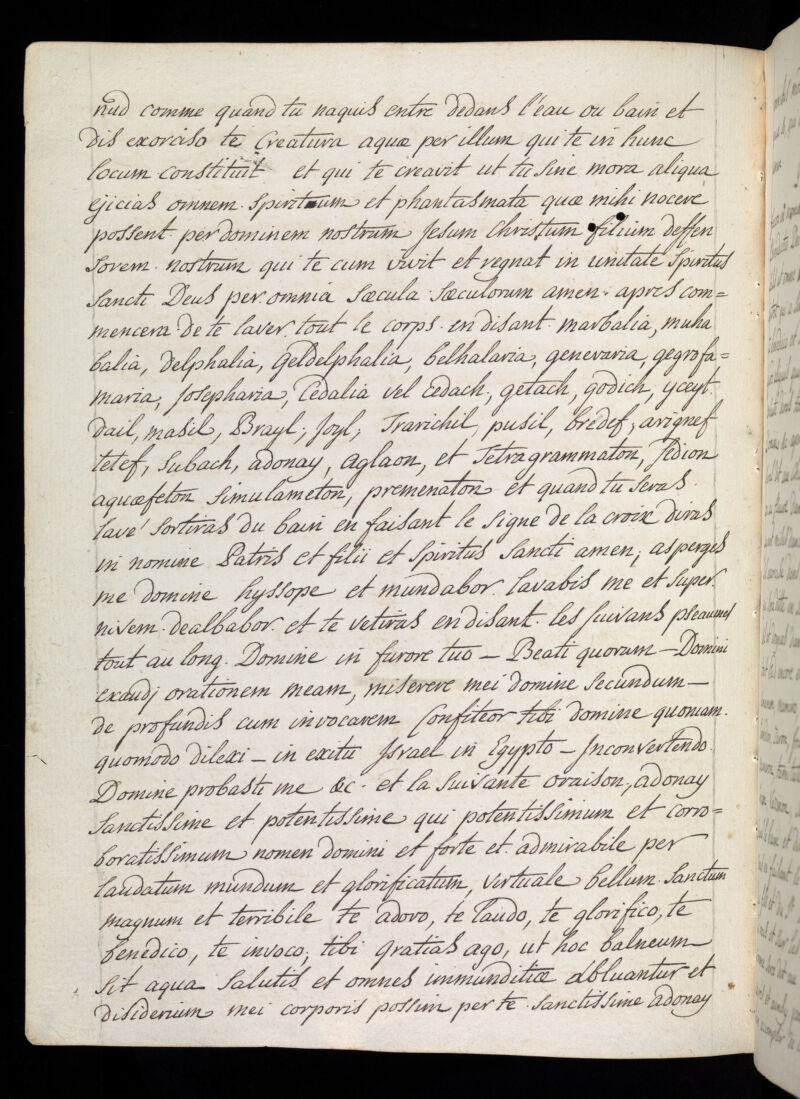 nud comme quand tu naquis entre dedans l'eau ou bain et
dis exorciso te Creatura aquæ per illum qui te in hunc
locum constituit et qui te creavit ut tu sine mora aliqua
ejicias omnem Spirituum et phantasmata quæ mihi nocere
possent. per dominem nostrum Jesum Christum filium deffen
sorem. nostrum qui te cum vivit et regnat in unitate Spiritus
Sancti Deus per omnia Sæcula Sæculorum amen. apres com=
mencera de te laver tout le corps en disant. marbalia, muha
balia, Delphalia, Geldelphalia, belhalaria, genevaria, gegrofa=
maria, Josepharia, Cedalia vel Cedach, getach, godich, yceyt.
Dail, masil, Brayl, Joyl, Trarichil, pusil, bredef, arignef
tetef, Subach, adonay, aglaon, et Tetragrammaton, Sedion
aquæfeton Simulameton, premenaton et quand tu Seras
lavé Sortiras du bain en faisant le Signe de la croix diras
in nomine Patris et filii et Spiritus Sancti amen, asperges
me domine hyssope et mundabor. lavabis me et Super
nivem. dealbabor. et te vetiras en disant. les Suivans pseaumes
tout au long. Domine in furore tuo – Beati quorum – Domini
exaudj orationem meam, miserere mei domine Secundum –
de profundis cum invocarem Confiteor tibi domine quoniam.
quomodo dilexi – in exitu Jsrael in Egypto – Jnconvertendo.
Domine probasti me &c. et la Suivante oraison, adonay
Sanctissime et potentissime qui potentissimum et corro=
boratissimum nomen domini et forte et admirabile per
laudatum mundum et glorificatum, virtuale bellum. Sanctum
magnum et terribile te adoro, te laudo, te glorifico, te
benedico, te invoco, tibi gratias ago, ut hoc balneum
Sit aqua Salutis et omnes immunditiæ abluantur et
disiderium mei corporis possim per te. Sanctissime adonay